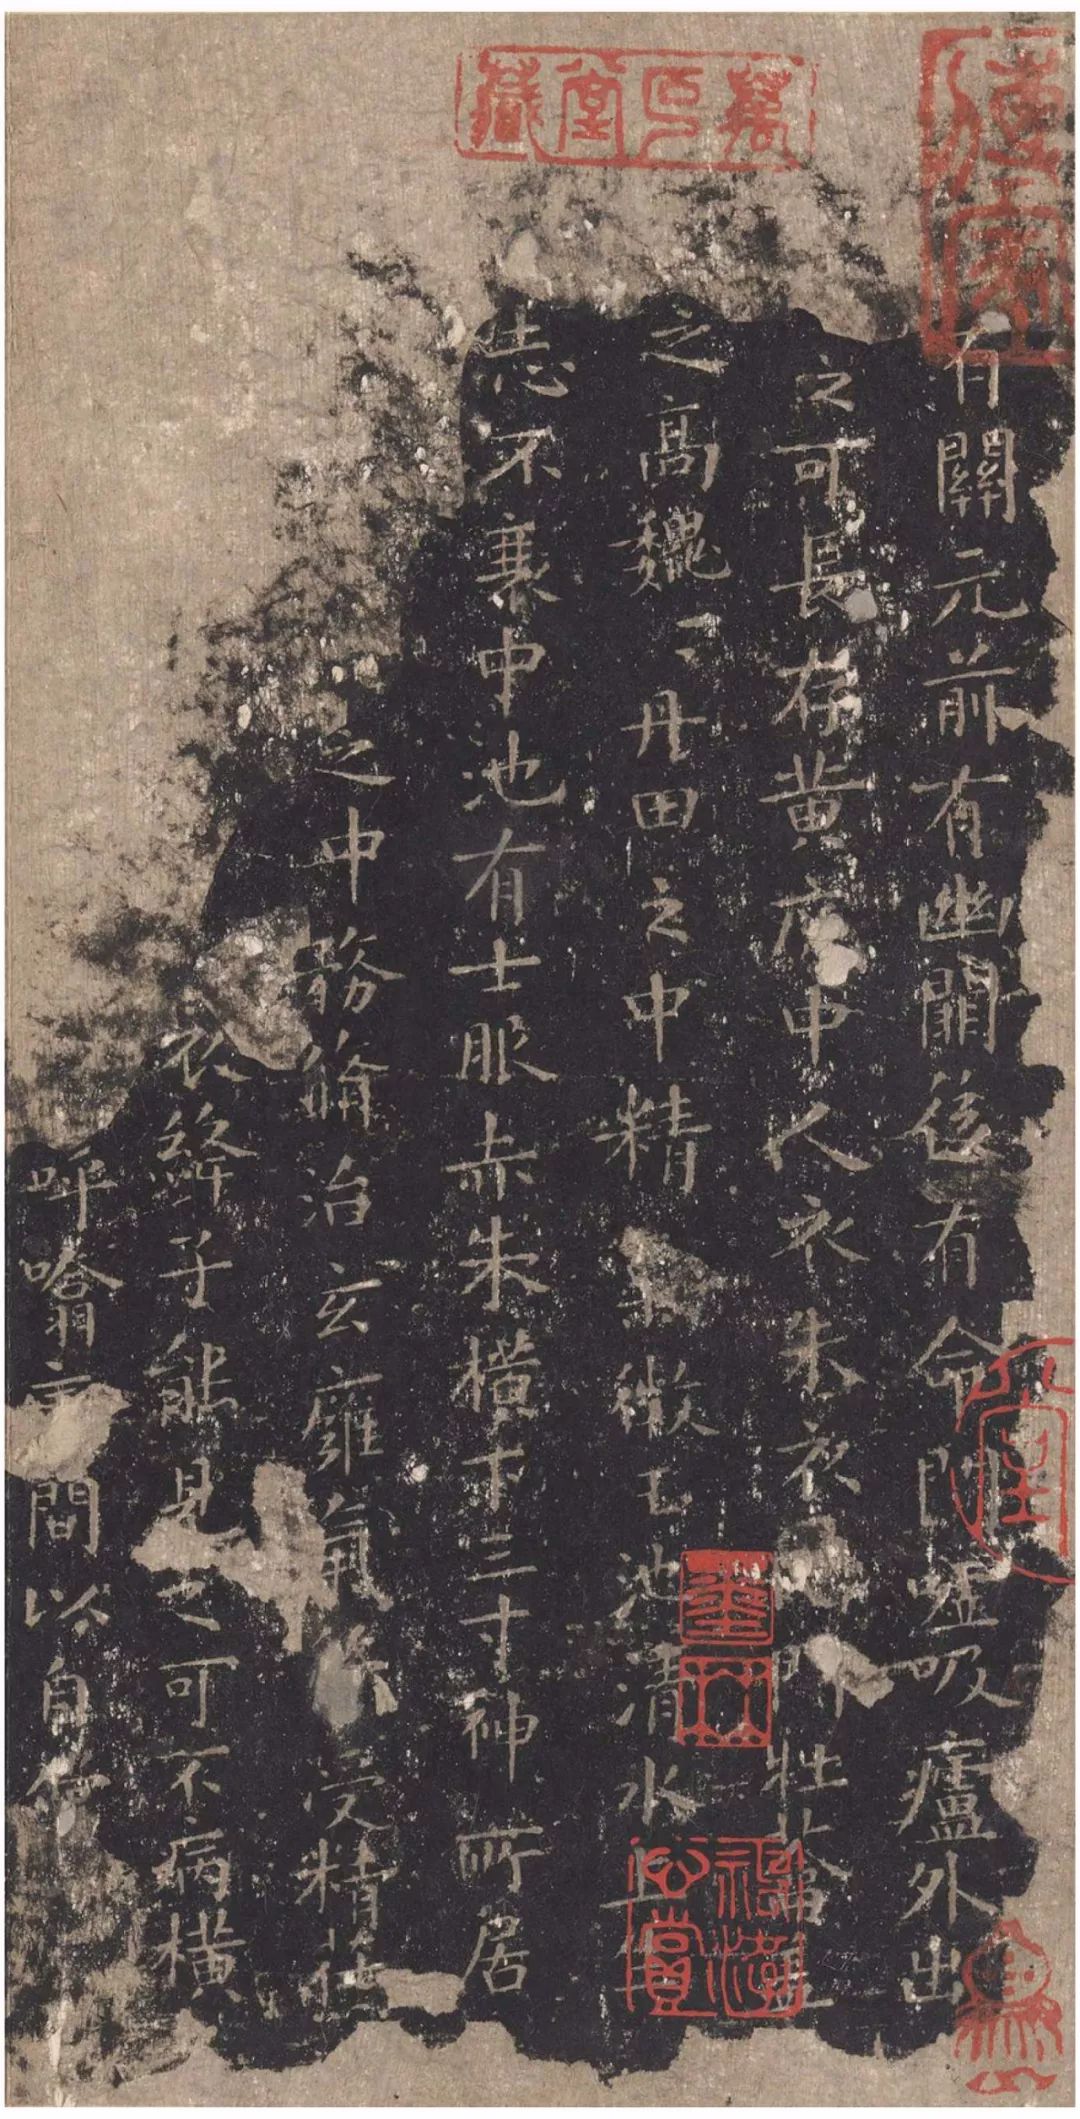 有關元前有幽闕後有命門噓吸廬外出
之可長存黄庭中人衣朱衣門牡蘥
之高魏〻丹田之中精氣微玉池清水上
志不衰中池有士服赤朱橫下三寸神所居
之中務脩治玄癕氣受精苻
衣絳子能見之可不病橫
呼噏間以自償
萬卮堂藏